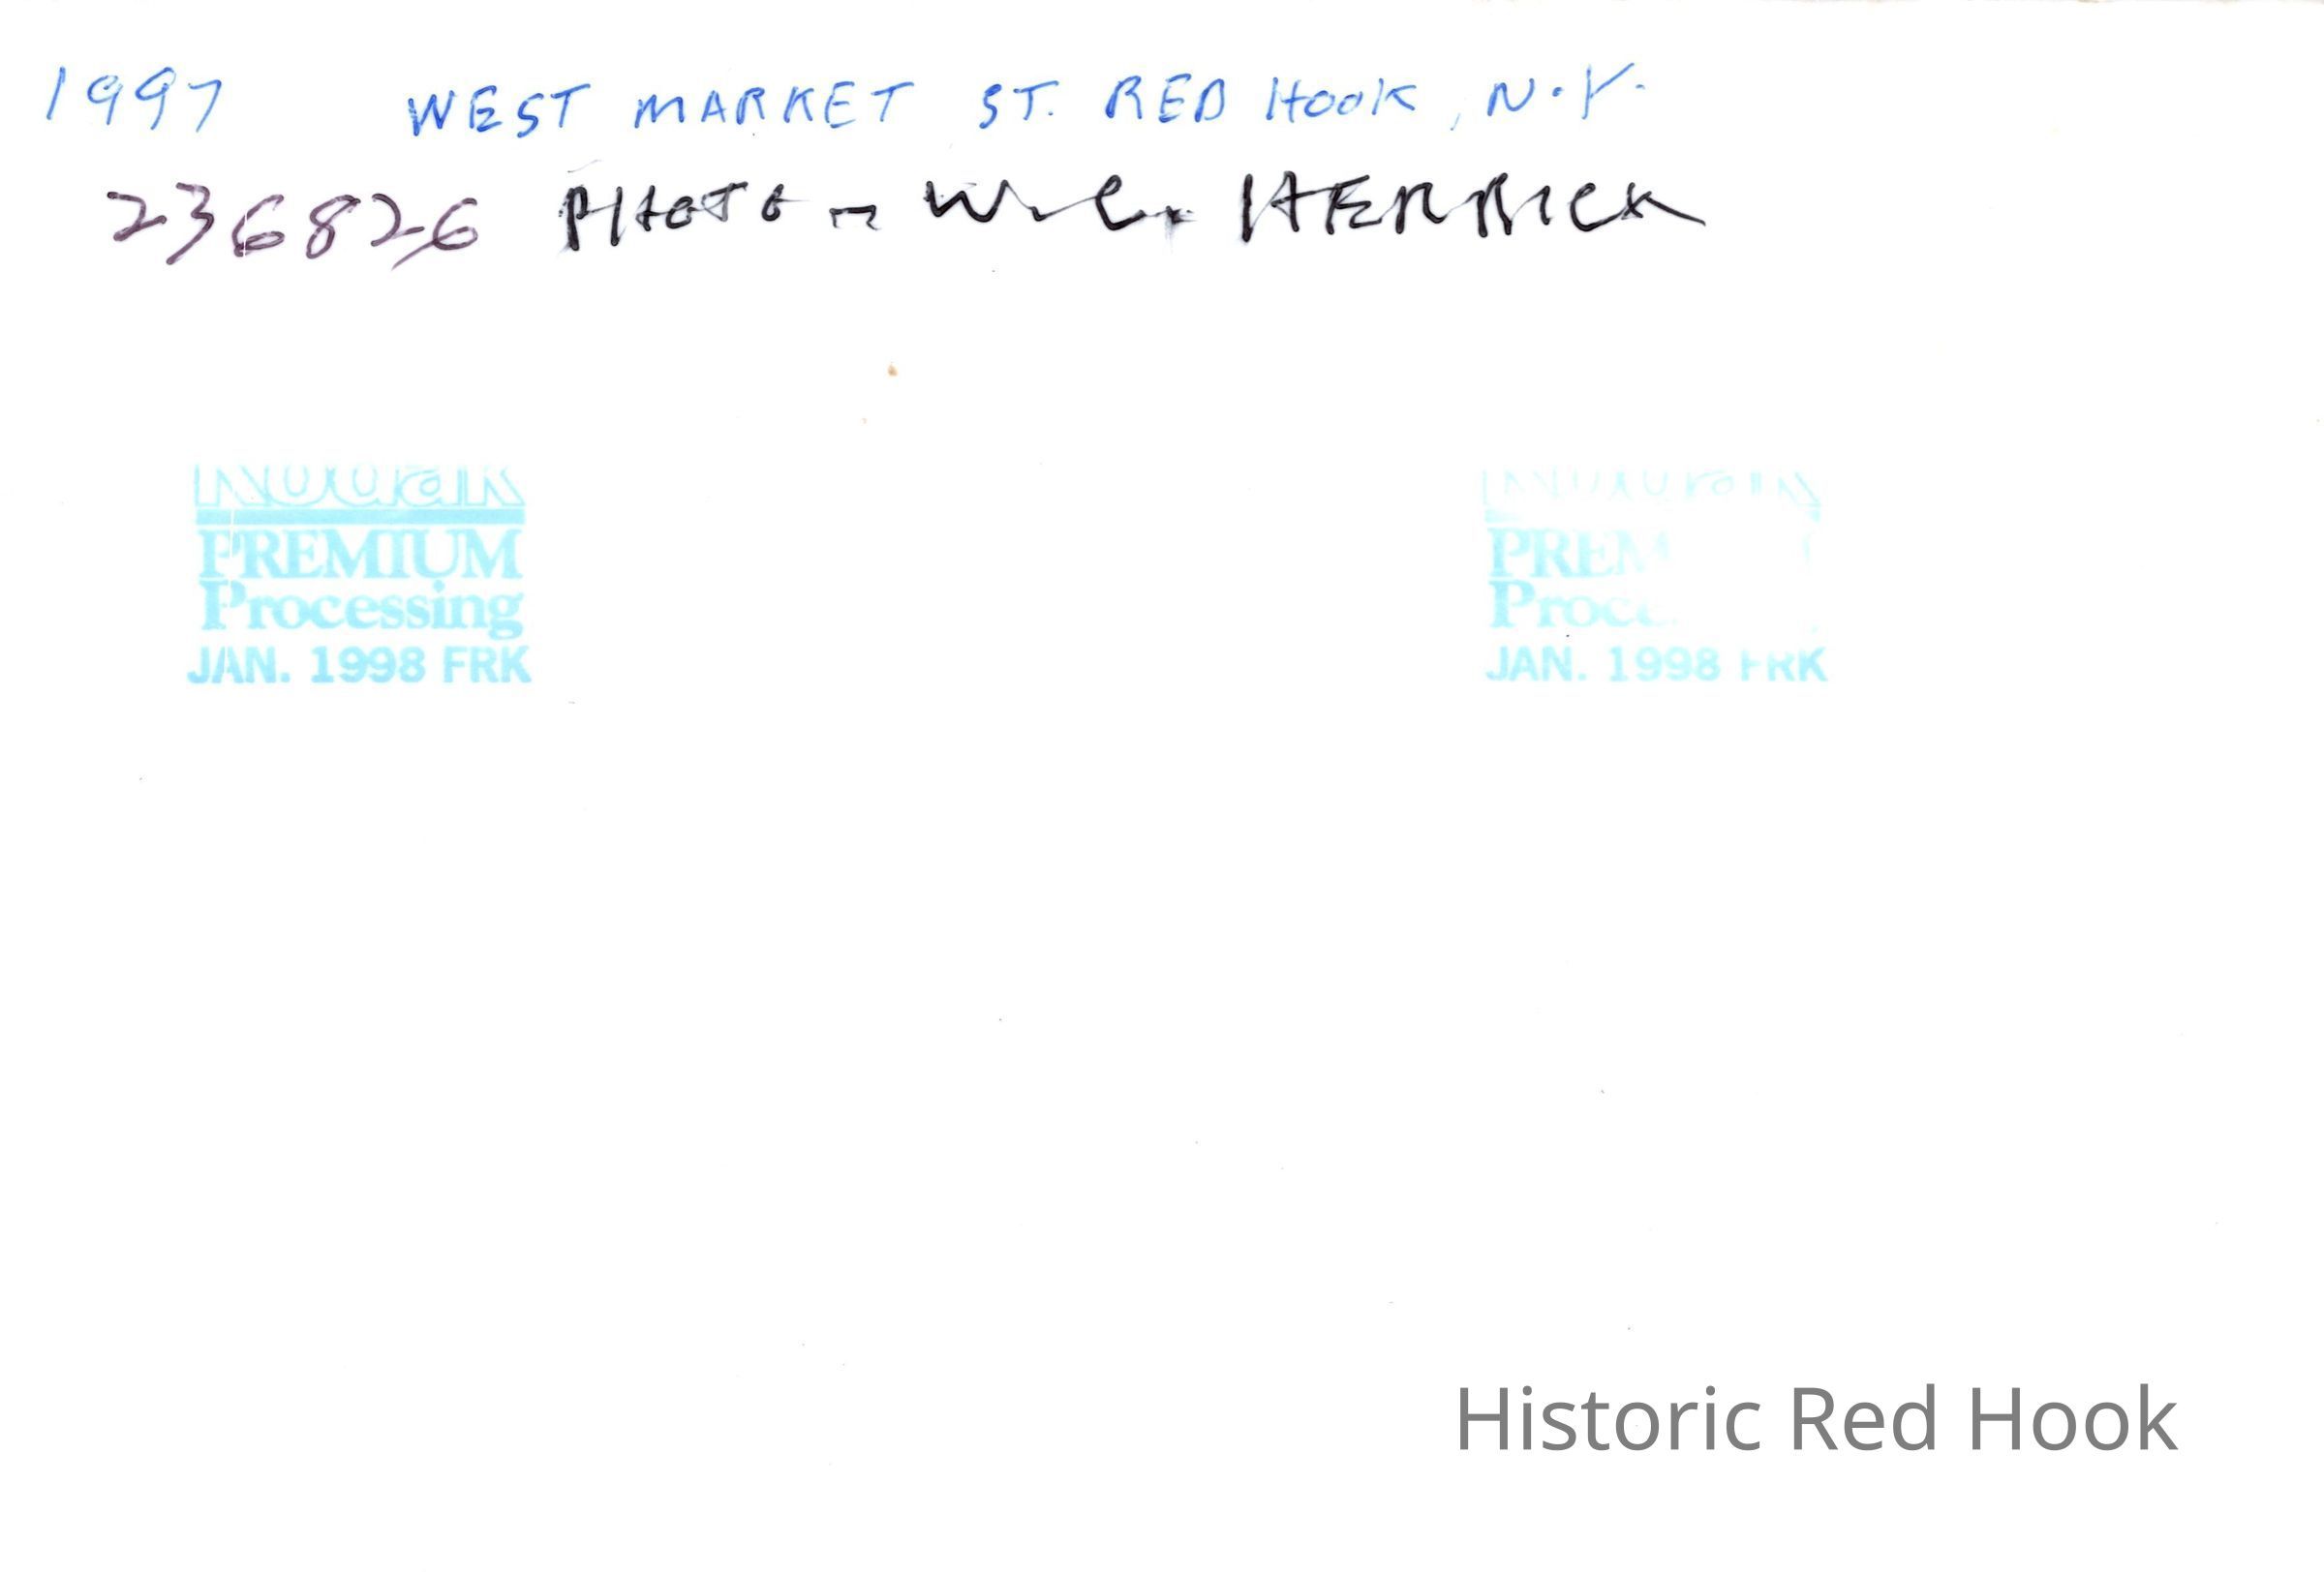 1997 WEST MARKET ST. RED HOOK, N.Y.
236826 PHOTO - HERRICK
Kodak
PREMIUM
Processing
JAN. 1998 FRK
PREM
Proce
JAN. 1998 FRK
Historic Red Hook